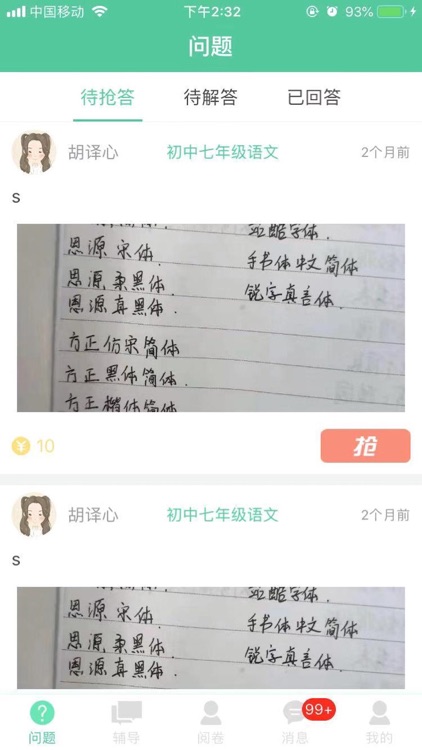 中国移动 下午2:32 93%
问题
待抢答 待解答 已回答
胡译心 初中七年级语文 2个月前
s
思源宋体. 站酷字体.
思源柔黑体. 手书体中文简体
思源真黑体. 锐字真言体.
方正仿宋简体
方正黑体简体.
方正楷体简体
¥ 10 抢
胡译心 初中七年级语文 2个月前
s
思源宋体. 站酷字体.
思源柔黑体. 手书体中文简体
思源真黑体. 锐字真言体.
99+
问题 辅导 阅卷 消息 我的